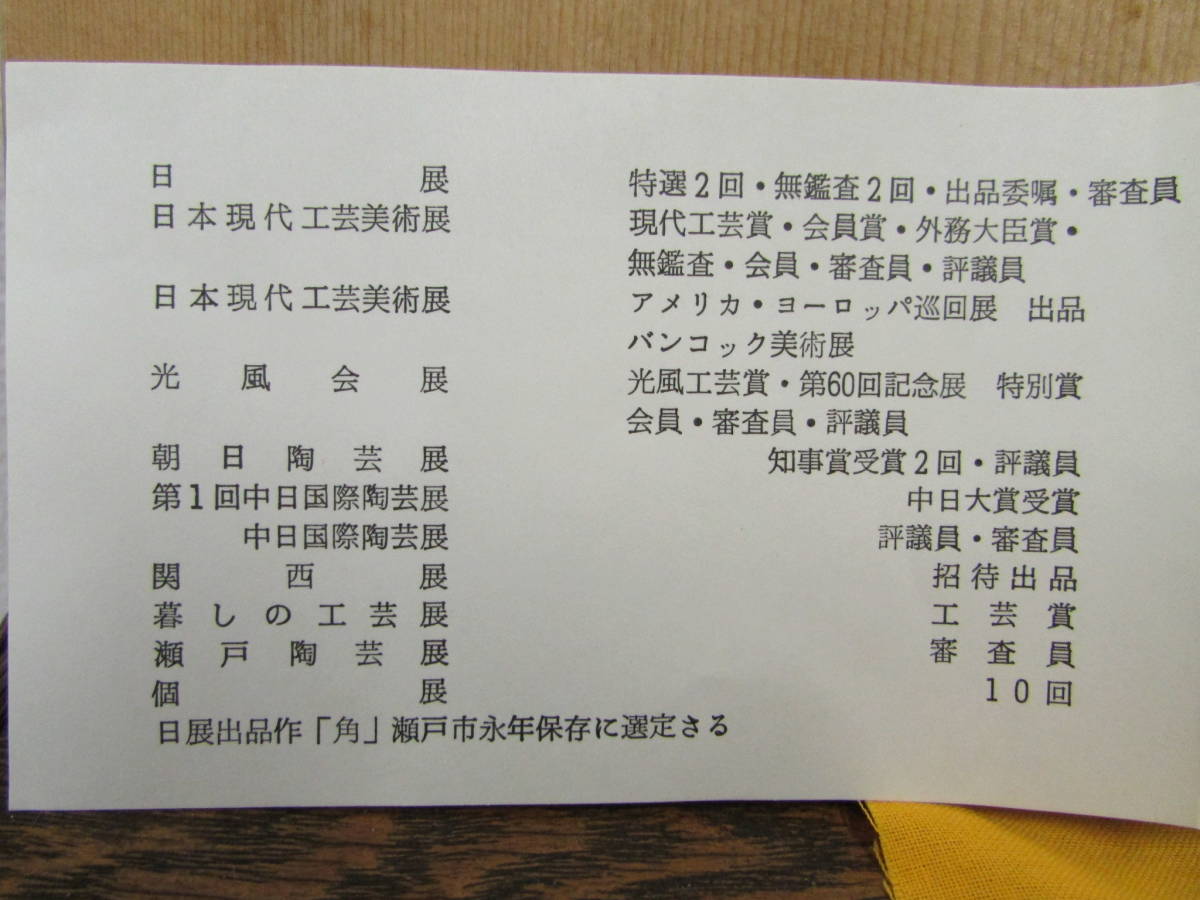 日展 特選2回・無鑑査2回・出品委嘱・審査員
日本現代工芸美術展 現代工芸賞・会員賞・外務大臣賞・
無鑑査・会員・審査員・評議員
日本現代工芸美術展 アメリカ・ヨーロッパ巡回展 出品
バンコック美術展
光風会展 光風工芸賞・第60回記念展 特別賞
会員・審査員・評議員
朝日陶芸展 知事賞受賞2回・評議員
第1回中日国際陶芸展 中日大賞受賞
中日国際陶芸展 評議員・審査員
関西展 招待出品
暮しの工芸展 工芸賞
瀬戸陶芸展 審査員
個展 10回
日展出品作「角」瀬戸市永年保存に選定さる